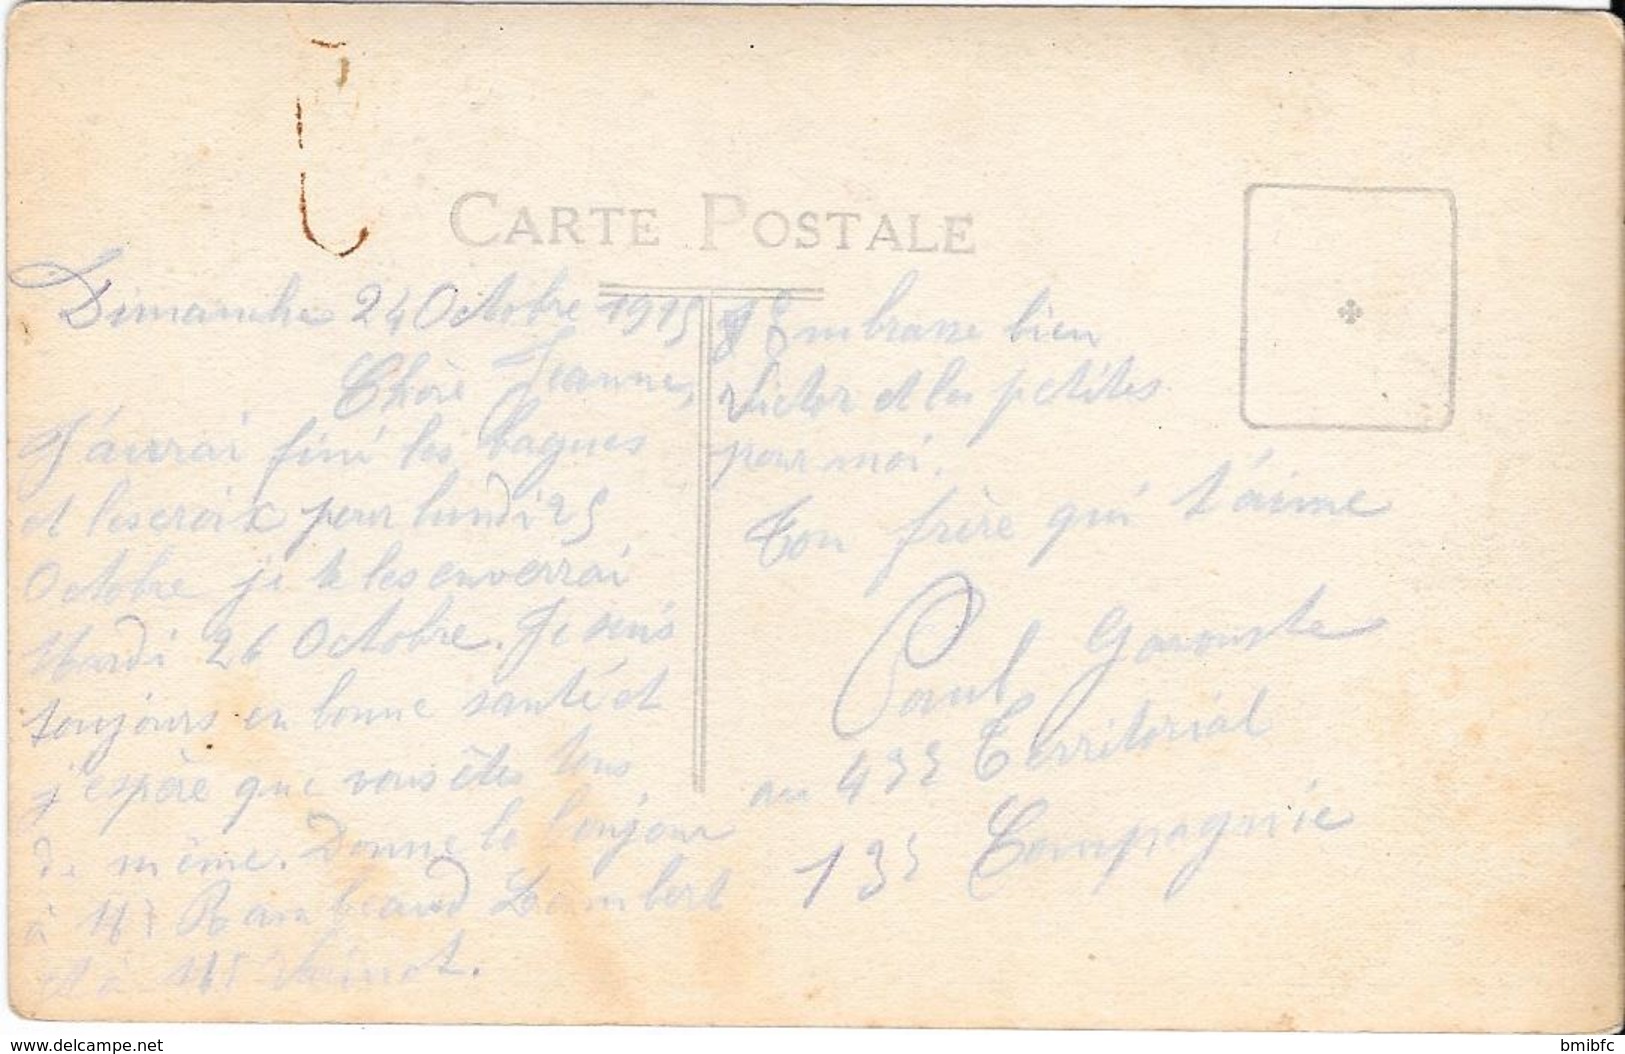 CARTE POSTALE
Dimanche 24 Octobre 1915
Chère Jeanne,
J'aurai fini les bagues
et les croix pour lundi 25
Octobre je te les enverrai
Mardi 26 Octobre. Je suis
toujours en bonne santé et
j'espère que vous êtes tous
de même. Donne le bonjour
à Mr Lambert
et à Mr
Embrasse bien
Victor et les petites
pour moi.
Ton frère qui t'aime
Paul
au 43e Territorial
13e Compagnie
www.delcampe.net
bmibfc